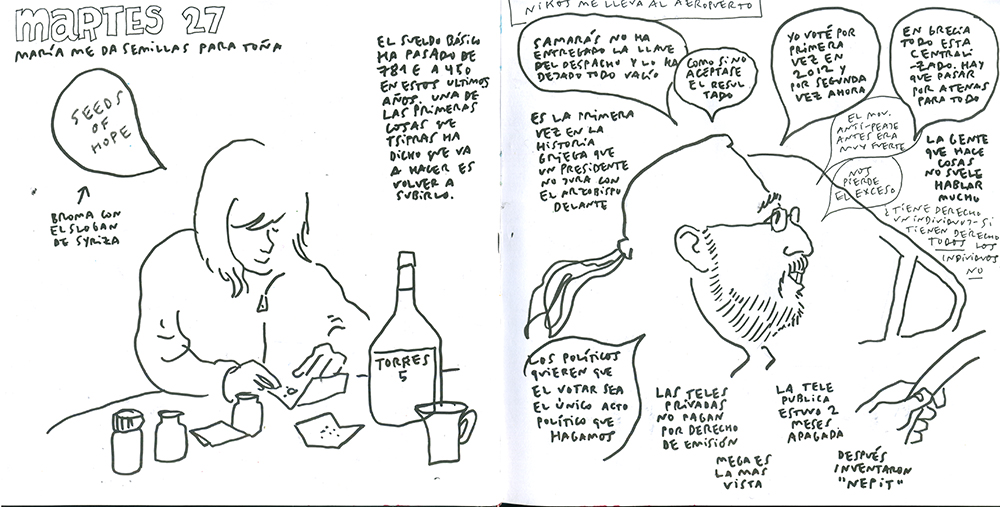 MARTES 27
MARÍA ME DA SEMILLAS PARA TOÑA
SEEDS
OF
HOPE
BROMA CON
EL SLOGAN
DE SYRIZA
EL SUELDO BÁSICO
HA PASADO DE
781 E A 450
EN ESTOS ULTIMOS
AÑOS. UNA DE
LAS PRIMERAS
COSAS QUE
TSIPRAS HA
DICHO QUE VA
A HACER ES
VOLVER A
SUBIRLO.
TORRES
5
NIKOS ME LLEVA AL AEROPUERTO
SAMARÁS NO HA
ENTREGADO LA LLAVE
DEL DESPACHO Y LO HA
DEJADO TODO VACÍO
COMO SI NO
ACEPTASE
EL RESUL
TADO
YO VOTÉ POR
PRIMERA
VEZ EN
2012 Y
POR SEGUNDA
VEZ AHORA
EN GRECIA
TODO ESTA
CENTRALI
-ZADO. HAY
QUE PASAR
POR ATENAS
PARA TODO
ES LA PRIMERA
VEZ EN LA
HISTORIA
GRIEGA QUE
UN PRESIDENTE
NO JURA CON
EL ARZOBISPO
DELANTE
EL MOV.
ANTI-PEAJE
ANTES ERA
MUY FUERTE
NOS
PIERDE
EL EXCESO
LA GENTE
QUE HACE
COSAS
NO SUELE
HABLAR
MUCHO
¿TIENE DERECHO
UN INDIVIDUO?-SI
TIENEN DERECHO
TODOS LOS
INDIVIDUOS
NO
LOS POLÍTICOS
QUIEREN QUE
EL VOTAR SEA
EL ÚNICO ACTO
POLÍTICO QUE
HAGAMOS
LAS TELES
PRIVADAS
NO PAGAN
POR DERECHO
DE EMISIÓN
MEGA ES
LA MAS
VISTA
LA TELE
PUBLICA
ESTUVO 2
MESES
APAGADA
DESPUÉS
INVENTARON
"NEPIT"